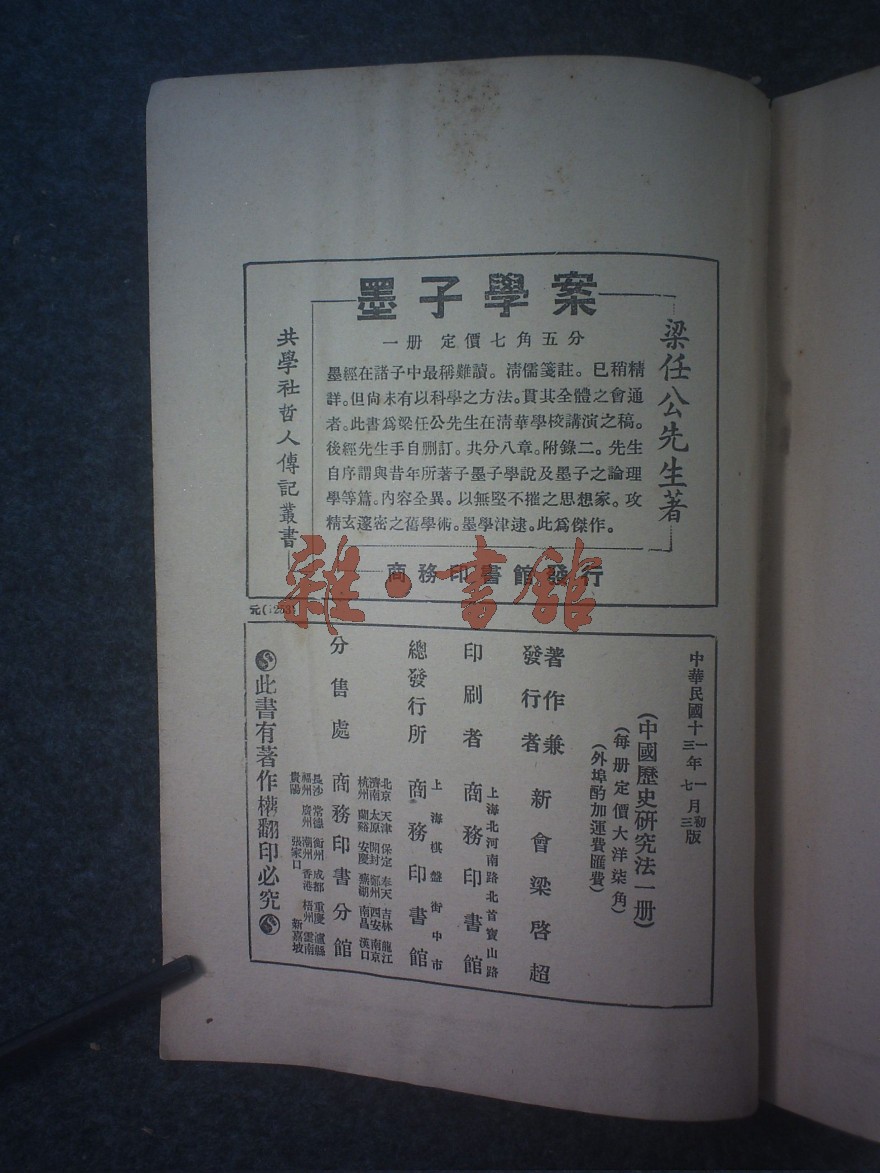 墨子學案
一册 定價七角五分
梁任公先生著
墨經在諸子中最稱難讀。清儒箋註。已稍精
詳。但尚未有以科學之方法。貫其全體之會通
者。此書爲梁任公先生在清華學校講演之稿。
後經先生手自删訂。共分八章。附錄二。先生
自序謂與昔年所著子墨子學說及墨子之論理
學等篇。内容全異。以無堅不摧之思想家。攻
精玄邃密之舊學術。墨學津逮。此爲傑作。
共學社哲人傳記叢書
商務印書館發行
雜·書館
中華民國十一年一月初版
三年七月三版
(中國歷史研究法一册)
(每册定價大洋柒角)
(外埠酌加運費匯費)
著作兼發行者 新會梁啓超
印刷者 上海北河南路北首寶山路 商務印書館
總發行所 上海棋盤街中市 商務印書館
分售處 商務印書分館
北京 天津 保定 奉天 吉林 龍江
濟南 太原 開封 鄭州 西安 南京
杭州 蘭谿 安慶 蕪湖 南昌 漢口
長沙 常德 衡州 成都 重慶 瀘縣
福州 廣州 潮州 香港 梧州 雲南
貴陽 張家口 新嘉坡
此書有著作權翻印必究